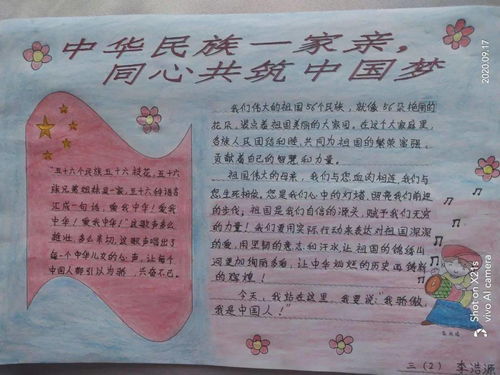 中华民族一家亲，
同心共筑中国梦
"五十六个民族五十六枝花，五十六
族兄弟姐妹是一家，五十六种语言
汇成一句话，爱我中华！爱我
中华！爱我中华！"这歌声多么
雄壮，多么亲切，这歌声唱出了
每一个中华儿女的心声，让每个
中国人都引以为骄，兴奋不已。
我们伟大的祖国56个民族，就像56朵艳丽的
花朵，装点着祖国美丽的大家园。在这个大家庭里，
各族人民团结和睦，共同为祖国的繁荣富强，
贡献着自己的智慧和力量。
祖国伟大的母亲，我们与您血肉相连，我们与
您生死相依。您是我们心中的灯塔，照亮我们前进
的步伐；祖国是我们自信的源头，赋予我们无穷
的力量！我们要用实际行动来表达对祖国深深
的爱，用坚韧的意志和汗水让祖国的锦绣山
河更加绚丽多彩，让中华灿烂的历史再铸新
的辉煌！
今天，我站在这里，我要说："我骄傲，
我是中国人！"
三（2） 李浩源
2020.09.17
Shot on X21s
vivo AI camera